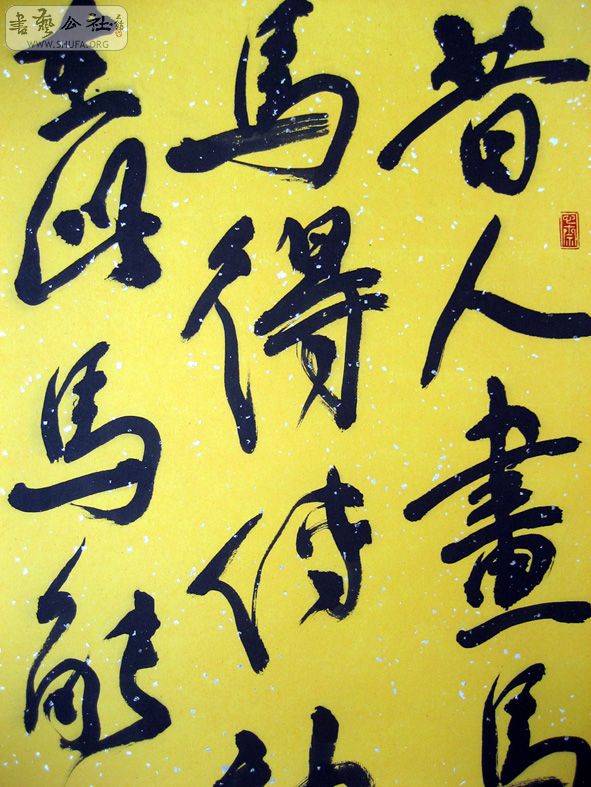 書藝公社
WWW.SHUFA.ORG
昔人畫馬
馬得傳
馬能